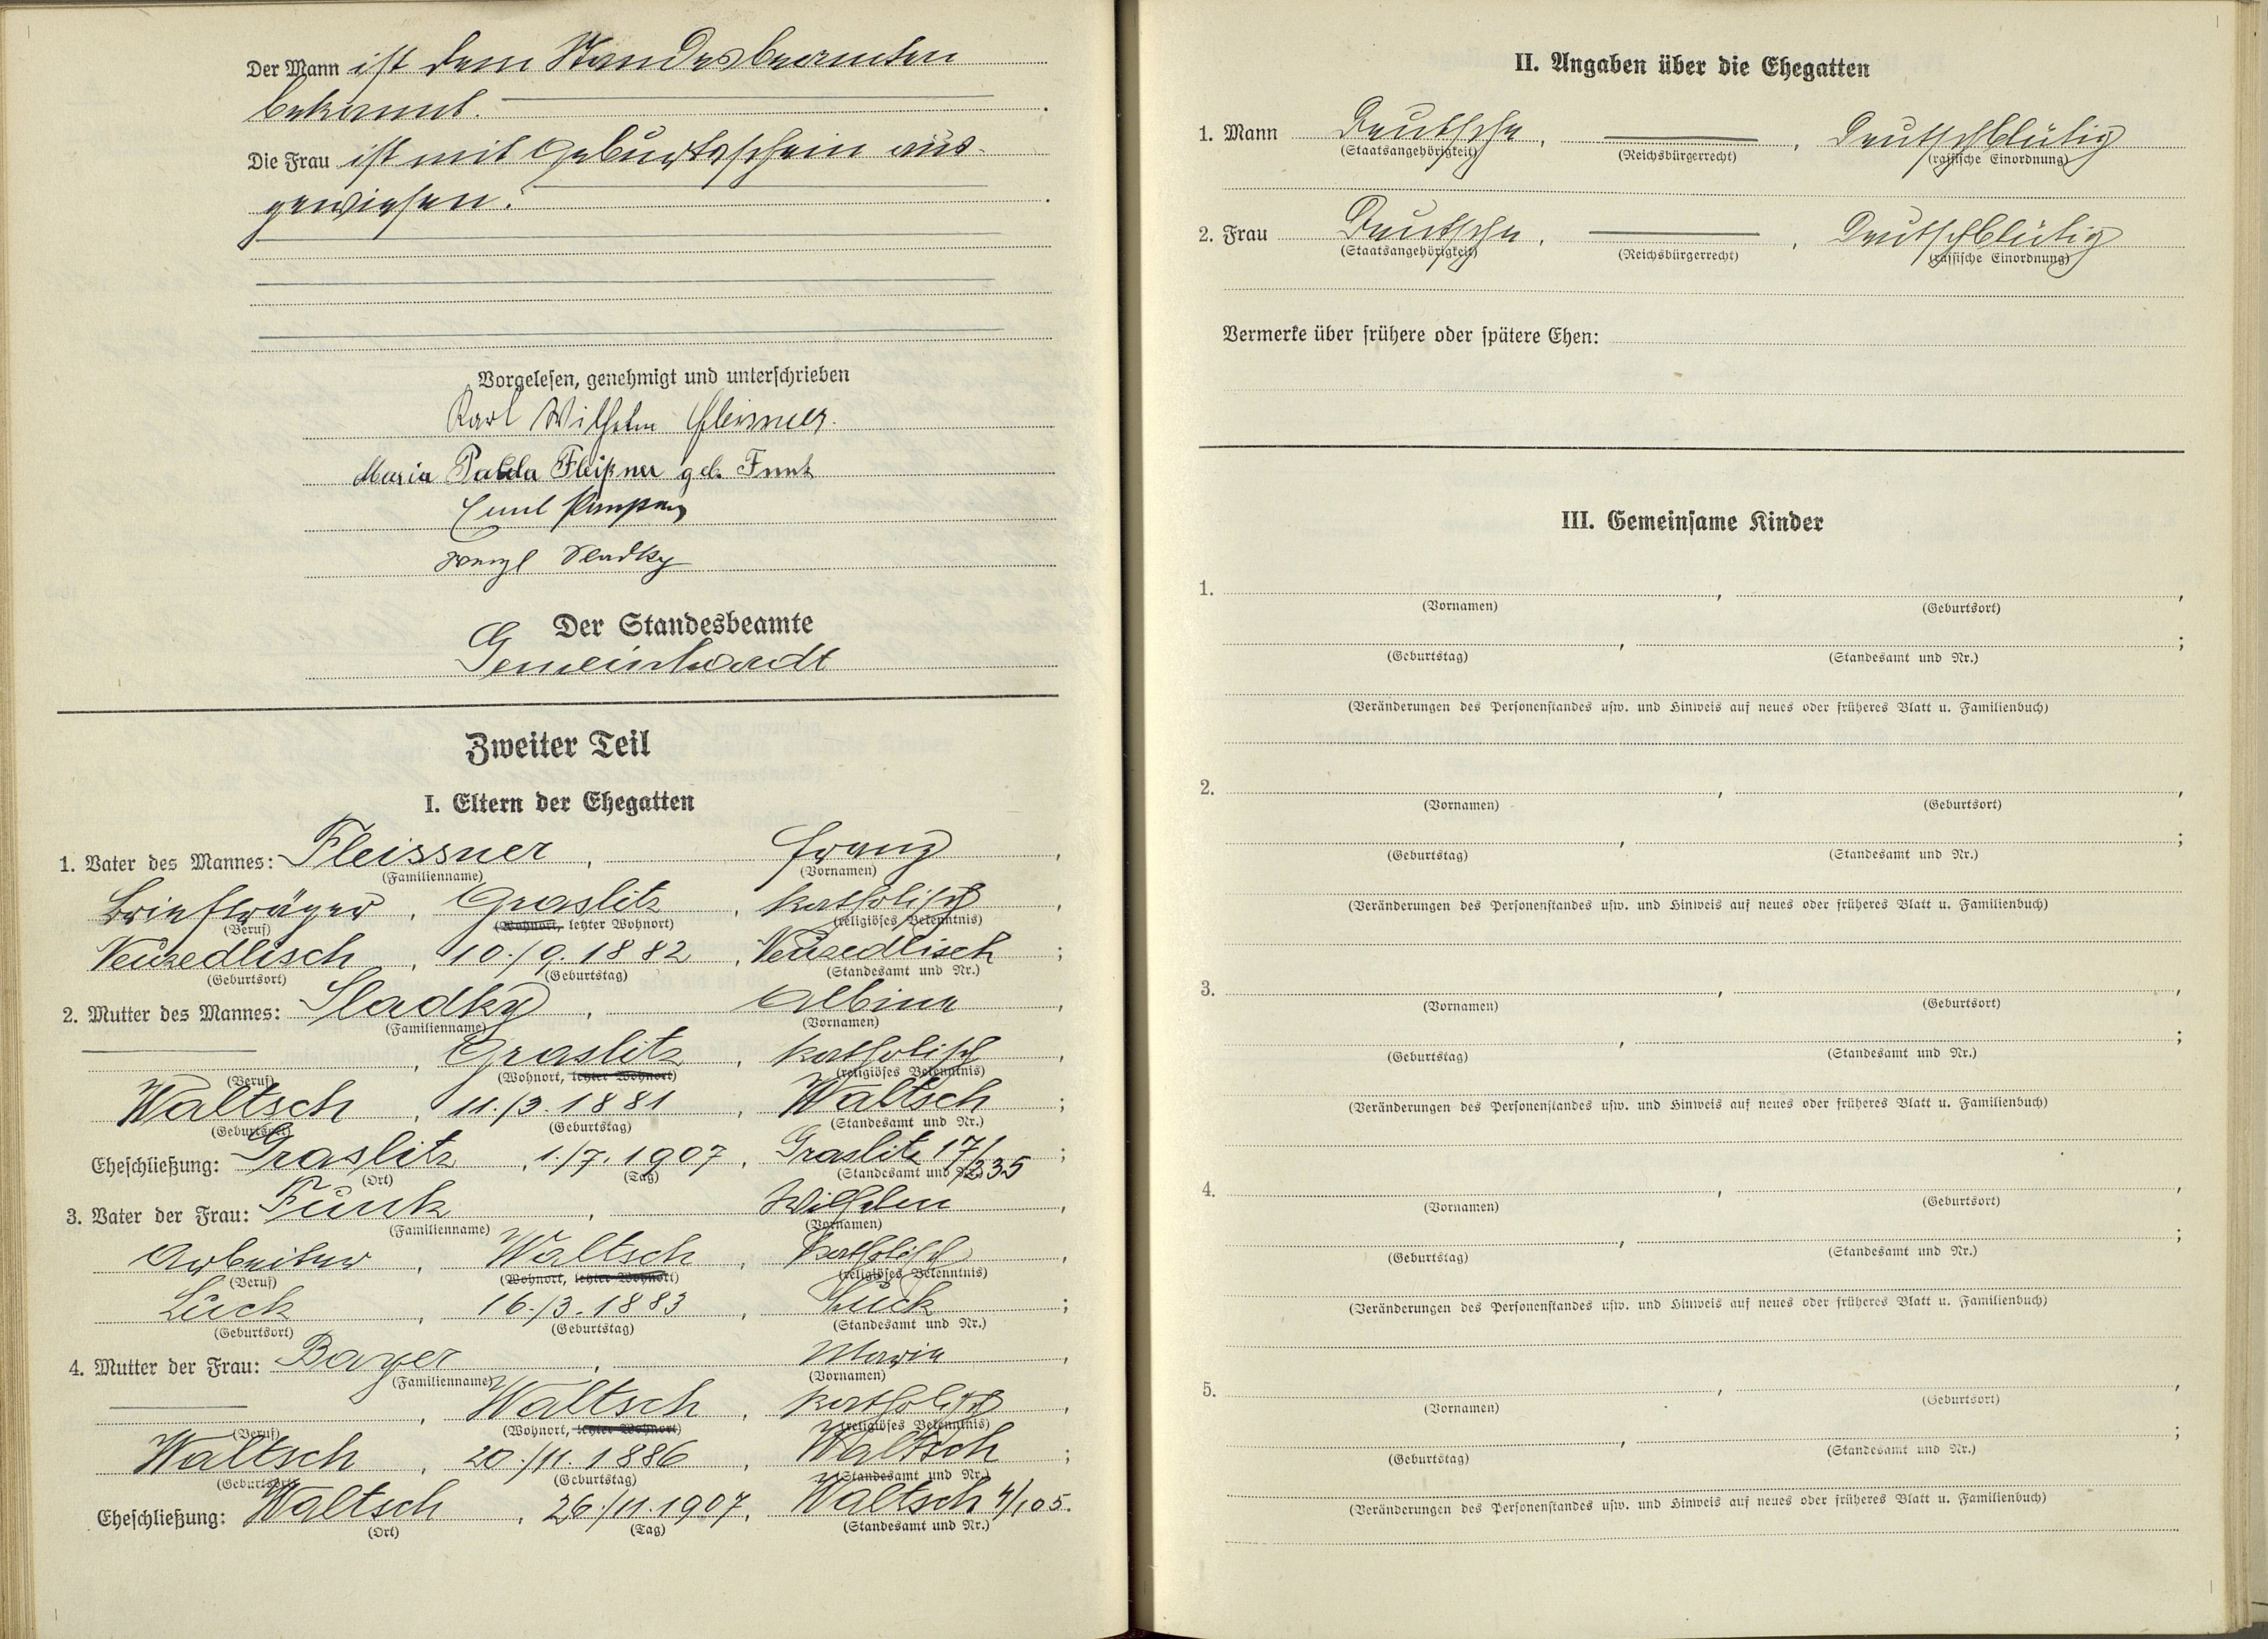 Der Mann ist dem Standesbeamten
bekannt.
Die Frau ist mit Geburtsschein aus-
gewiesen.
Vorgelesen, genehmigt und unterschrieben
Karl Wilhelm Fleissner.
Maria Fleißner geb. Funk
Emil
Wenzl Sladky
Der Standesbeamte
Gemeinhardt
Zweiter Teil
I. Eltern der Ehegatten
1. Vater des Mannes: Fleissner, Franz,
(Familienname) (Vornamen)
Briefträger, Graslitz, katholisch,
(Beruf) (Wohnort, letzter Wohnort) (religiöses Bekenntnis)
Neuzedlisch, 10./9.1882, Neuzedlisch;
(Geburtsort) (Geburtstag) (Standesamt und Nr.)
2. Mutter des Mannes: Sladky, Albina,
(Familienname) (Vornamen)
Graslitz, katholisch,
(Beruf) (Wohnort, letzter Wohnort) (religiöses Bekenntnis)
Waltsch, 11./3.1881, Waltsch;
(Geburtsort) (Geburtstag) (Standesamt und Nr.)
Eheschließung: Graslitz, 1./7.1907, Graslitz 17/335;
(Ort) (Tag) (Standesamt und Nr.)
3. Vater der Frau: Funk, Wilhelm,
(Familienname) (Vornamen)
Arbeiter, Waltsch, katholisch,
(Beruf) (Wohnort, letzter Wohnort) (religiöses Bekenntnis)
Luck, 16./3.1883, Luck;
(Geburtsort) (Geburtstag) (Standesamt und Nr.)
4. Mutter der Frau: Bayer, Maria,
(Familienname) (Vornamen)
Waltsch, katholisch,
(Beruf) (Wohnort, letzter Wohnort) (religiöses Bekenntnis)
Waltsch, 20./11.1886, Waltsch;
(Geburtsort) (Geburtstag) (Standesamt und Nr.)
Eheschließung: Waltsch, 26./11.1907, Waltsch 4/105.
(Ort) (Tag) (Standesamt und Nr.)
II. Angaben über die Ehegatten
1. Mann Deutsche, , Deutschblütig
(Staatsangehörigkeit) (Reichsbürgerrecht) (rassische Einordnung)
2. Frau Deutsche, , Deutschblütig
(Staatsangehörigkeit) (Reichsbürgerrecht) (rassische Einordnung)
Vermerke über frühere oder spätere Ehen:
III. Gemeinsame Kinder
1. , ,
(Vornamen) (Geburtsort)
, ;
(Geburtstag) (Standesamt und Nr.)
(Veränderungen des Personenstandes usw. und Hinweis auf neues oder früheres Blatt u. Familienbuch)
2. , ,
(Vornamen) (Geburtsort)
, ;
(Geburtstag) (Standesamt und Nr.)
(Veränderungen des Personenstandes usw. und Hinweis auf neues oder früheres Blatt u. Familienbuch)
3. , ,
(Vornamen) (Geburtsort)
, ;
(Geburtstag) (Standesamt und Nr.)
(Veränderungen des Personenstandes usw. und Hinweis auf neues oder früheres Blatt u. Familienbuch)
4. , ,
(Vornamen) (Geburtsort)
, ;
(Geburtstag) (Standesamt und Nr.)
(Veränderungen des Personenstandes usw. und Hinweis auf neues oder früheres Blatt u. Familienbuch)
5. , ,
(Vornamen) (Geburtsort)
, ;
(Geburtstag) (Standesamt und Nr.)
(Veränderungen des Personenstandes usw. und Hinweis auf neues oder früheres Blatt u. Familienbuch)